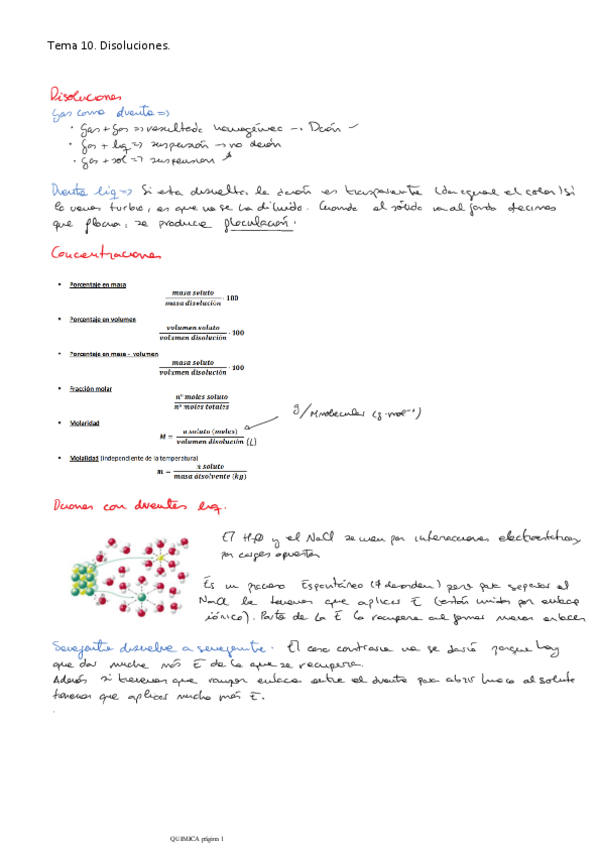 Tema 10. Disoluciones.
Disoluciones
Gas como dvente =>
• Gas + Gas => resultado homogéneo -> Dción
• Gas + liq => suspensión -> no dción
• Gas + sol => suspensión
Dvente liq => Si esta disuelto, la dción es transparente (da igual el color) si
lo vemos turbio, es que no se ha diluido. Cuando el sólido va al fondo decimos
que flocula, se produce floculación.
Concentraciones
• Porcentaje en masa
masa soluto / masa disolución · 100
• Porcentaje en volumen
volumen soluto / volumen disolución · 100
• Porcentaje en masa - volumen
masa soluto / volumen disolución · 100
• Fracción molar
nº moles soluto / nº moles totales
• Molaridad
M = n soluto (moles) / volumen disolución (L)
g/Mmolecular (g·mol⁻¹)
• Molalidad (independiente de la temperatura)
m = n soluto / masa disolvente (kg)
Dciones con dventes liq.
El H₂O y el NaCl se unen por interacciones electrostáticas,
por cargas opuestas
Es un proceso Espontáneo (↑desorden) pero para separar el
NaCl le tenemos que aplicar E (están unidos por enlace
iónico). Parte de la E la recupera al formar nuevos enlaces
Semejante disuelve a semejante. El caso contrario no se daría porque hay
que dar mucha más E de la que se recupera.
Además si tenemos que romper enlaces entre el dvente para abrir hueco al soluto
tenemos que aplicar mucha más E.
QUIMICA página 1